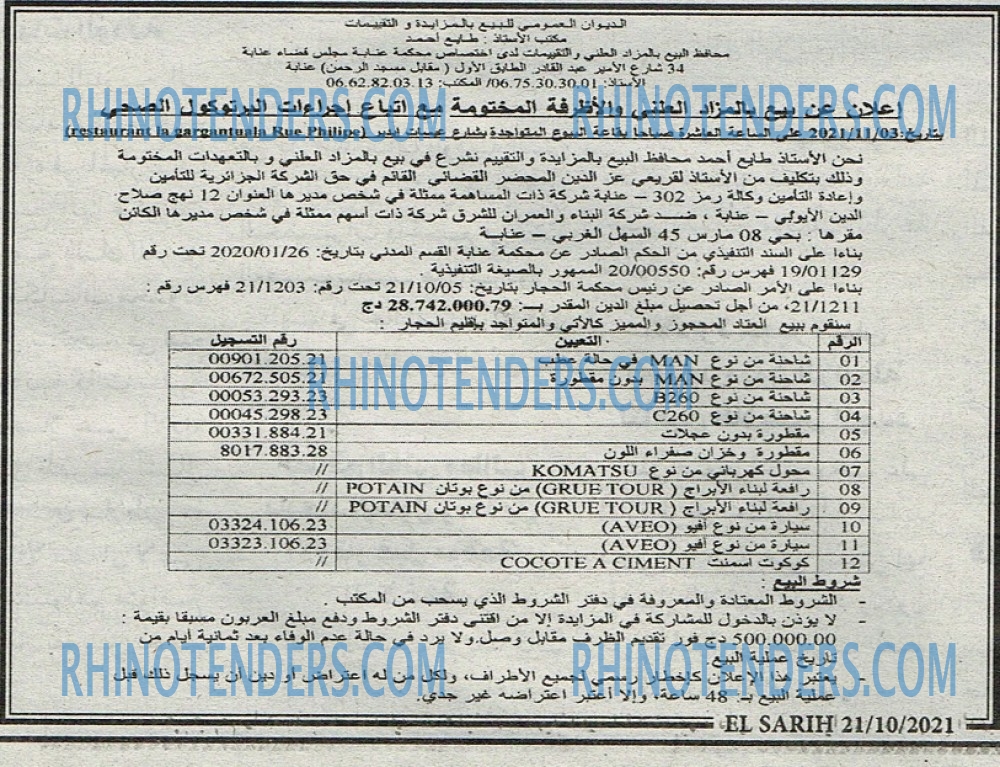 الديوان العمومي للبيع بالمزايدة و التقييمات
مكتب الأستاذ : طايع أحمد
محافظ البيع بالمزاد العلني والتقييمات لدى اختصاص محكمة عنابة مجلس قضاء عنابة
34 شارع الأمير عبد القادر الطابق الأول ( مقابل مسجد الرحمن) عنابة
الأستاذ: 06.75.30.30.01/ المكتب: 06.62.82.03.13
إعلان عن بيع بالمزاد العلني والأظرفة المختومة مع إتباع إجراءات البرتوكول الصحي
بتاريخ: 2021/11/03 على الساعة العاشرة صباحا بقاعة البيوع المتواجدة بشارع عيسات ايدير (restaurant la gargantuala Rue Philipe)
نحن الأستاذ طايع أحمد محافظ البيع بالمزايدة والتقييم نشرع في بيع بالمزاد العلني و بالتعهدات المختومة
وذلك بتكليف من الأستاذ لقريعي عز الدين المحضر القضائي القائم في حق الشركة الجزائرية للتأمين
وإعادة التأمين وكالة رمز 302 – عنابة شركة ذات المساهمة ممثلة في شخص مديرها العنوان 12 نهج صلاح
الدين الأيوبي – عنابة ، ضد شركة البناء والعمران للشرق شركة ذات أسهم ممثلة في شخص مديرها الكائن
مقرها : بحي 08 مارس 45 السهل الغربي – عنابة
بناءا على السند التنفيذي من الحكم الصادر عن محكمة عنابة القسم المدني بتاريخ: 2020/01/26 تحت رقم
19/01129 فهرس رقم: 20/00550 الممهور بالصيغة التنفيذية .
بناءا على الأمر الصادر عن رئيس محكمة الحجار بتاريخ: 21/10/05 تحت رقم: 21/1203 فهرس رقم :
21/1211، من أجل تحصيل مبلغ الدين المقدر بـ: 28.742.000.79 دج
سنقوم ببيع العتاد المحجوز والمميز كالأتي والمتواجد بإقليم الحجار :
الرقم التعيين رقم التسجيل
01 شاحنة من نوع MAN في حالة عطب 00901.205.21
02 شاحنة من نوع MAN بدون مقطورة 00672.505.21
03 شاحنة من نوع B260 00053.293.23
04 شاحنة من نوع C260 00045.298.23
05 مقطورة بدون عجلات 00331.884.21
06 مقطورة وخزان صفراء اللون 8017.883.28
07 محول كهربائي من نوع KOMATSU //
08 رافعة لبناء الأبراج ( GRUE TOUR) من نوع بوتان POTAIN //
09 رافعة لبناء الأبراج ( GRUE TOUR) من نوع بوتان POTAIN //
10 سيارة من نوع أفيو (AVEO) 03324.106.23
11 سيارة من نوع أفيو (AVEO) 03323.106.23
12 كوكوت اسمنت COCOTE A CIMENT //
شروط البيع :
- الشروط المعتادة والمعروفة في دفتر الشروط الذي يسحب من المكتب .
- لا يؤذن بالدخول للمشاركة في المزايدة إلا من اقتنى دفتر الشروط ودفع مبلغ العربون مسبقا بقيمة :
500.000.00 دج فور تقديم الظرف مقابل وصل.ولا يرد في حالة عدم الوفاء بعد ثمانية أيام من
تاريخ عملية البيع.
- يعتبر هذا الإعلان كإخطار رسمي لجميع الأطراف، ولكل من له اعتراض أو دين أن يسجل ذلك قبل
عملية البيع بـ 48 ساعة، وإلا أعتبر اعتراضه غير جدي.
EL SARIH 21/10/2021
RHINOTENDERS.COM
RHINOTENDERS.COM
RHINOTENDERS.COM
RHINOTENDERS.COM
RHINOTENDERS.COM